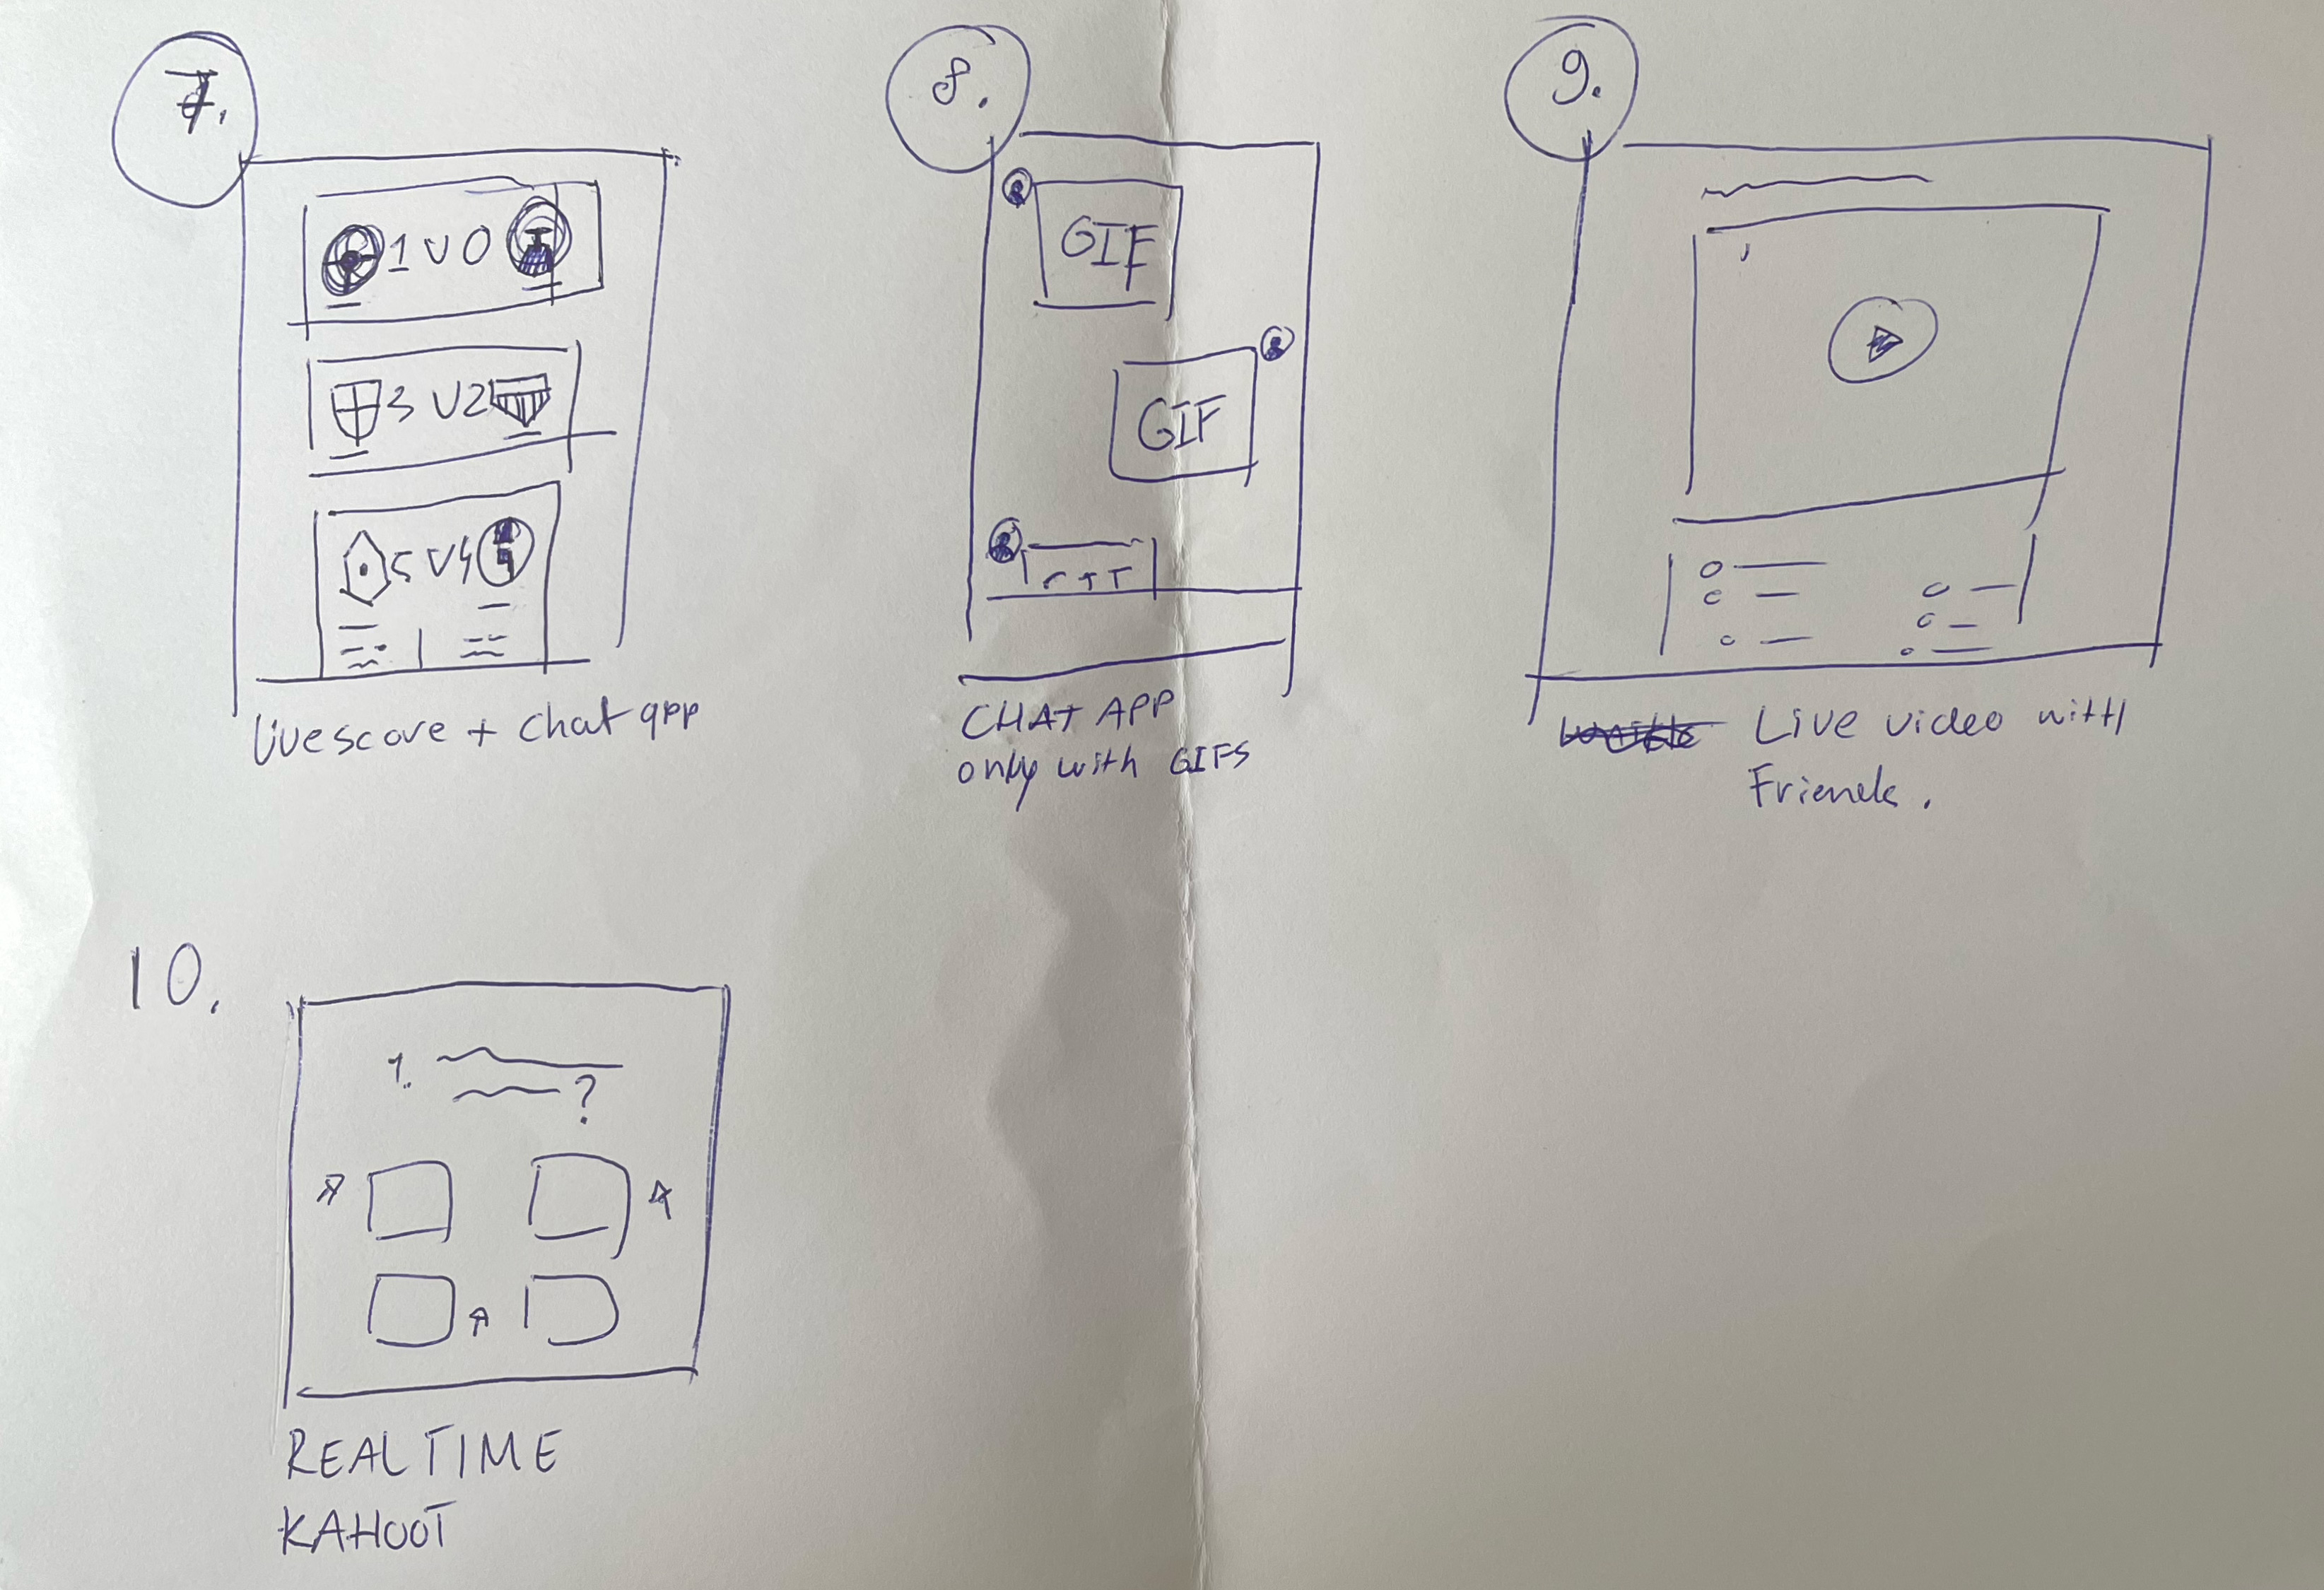 7.
1 v 0
3 v 2
5 v 4
livescore + chat app
8.
GIF
GIF
CHAT APP
only with GIFS
9.
Live video with
Friends.
10.
1.
?
REALTIME
KAHOOT